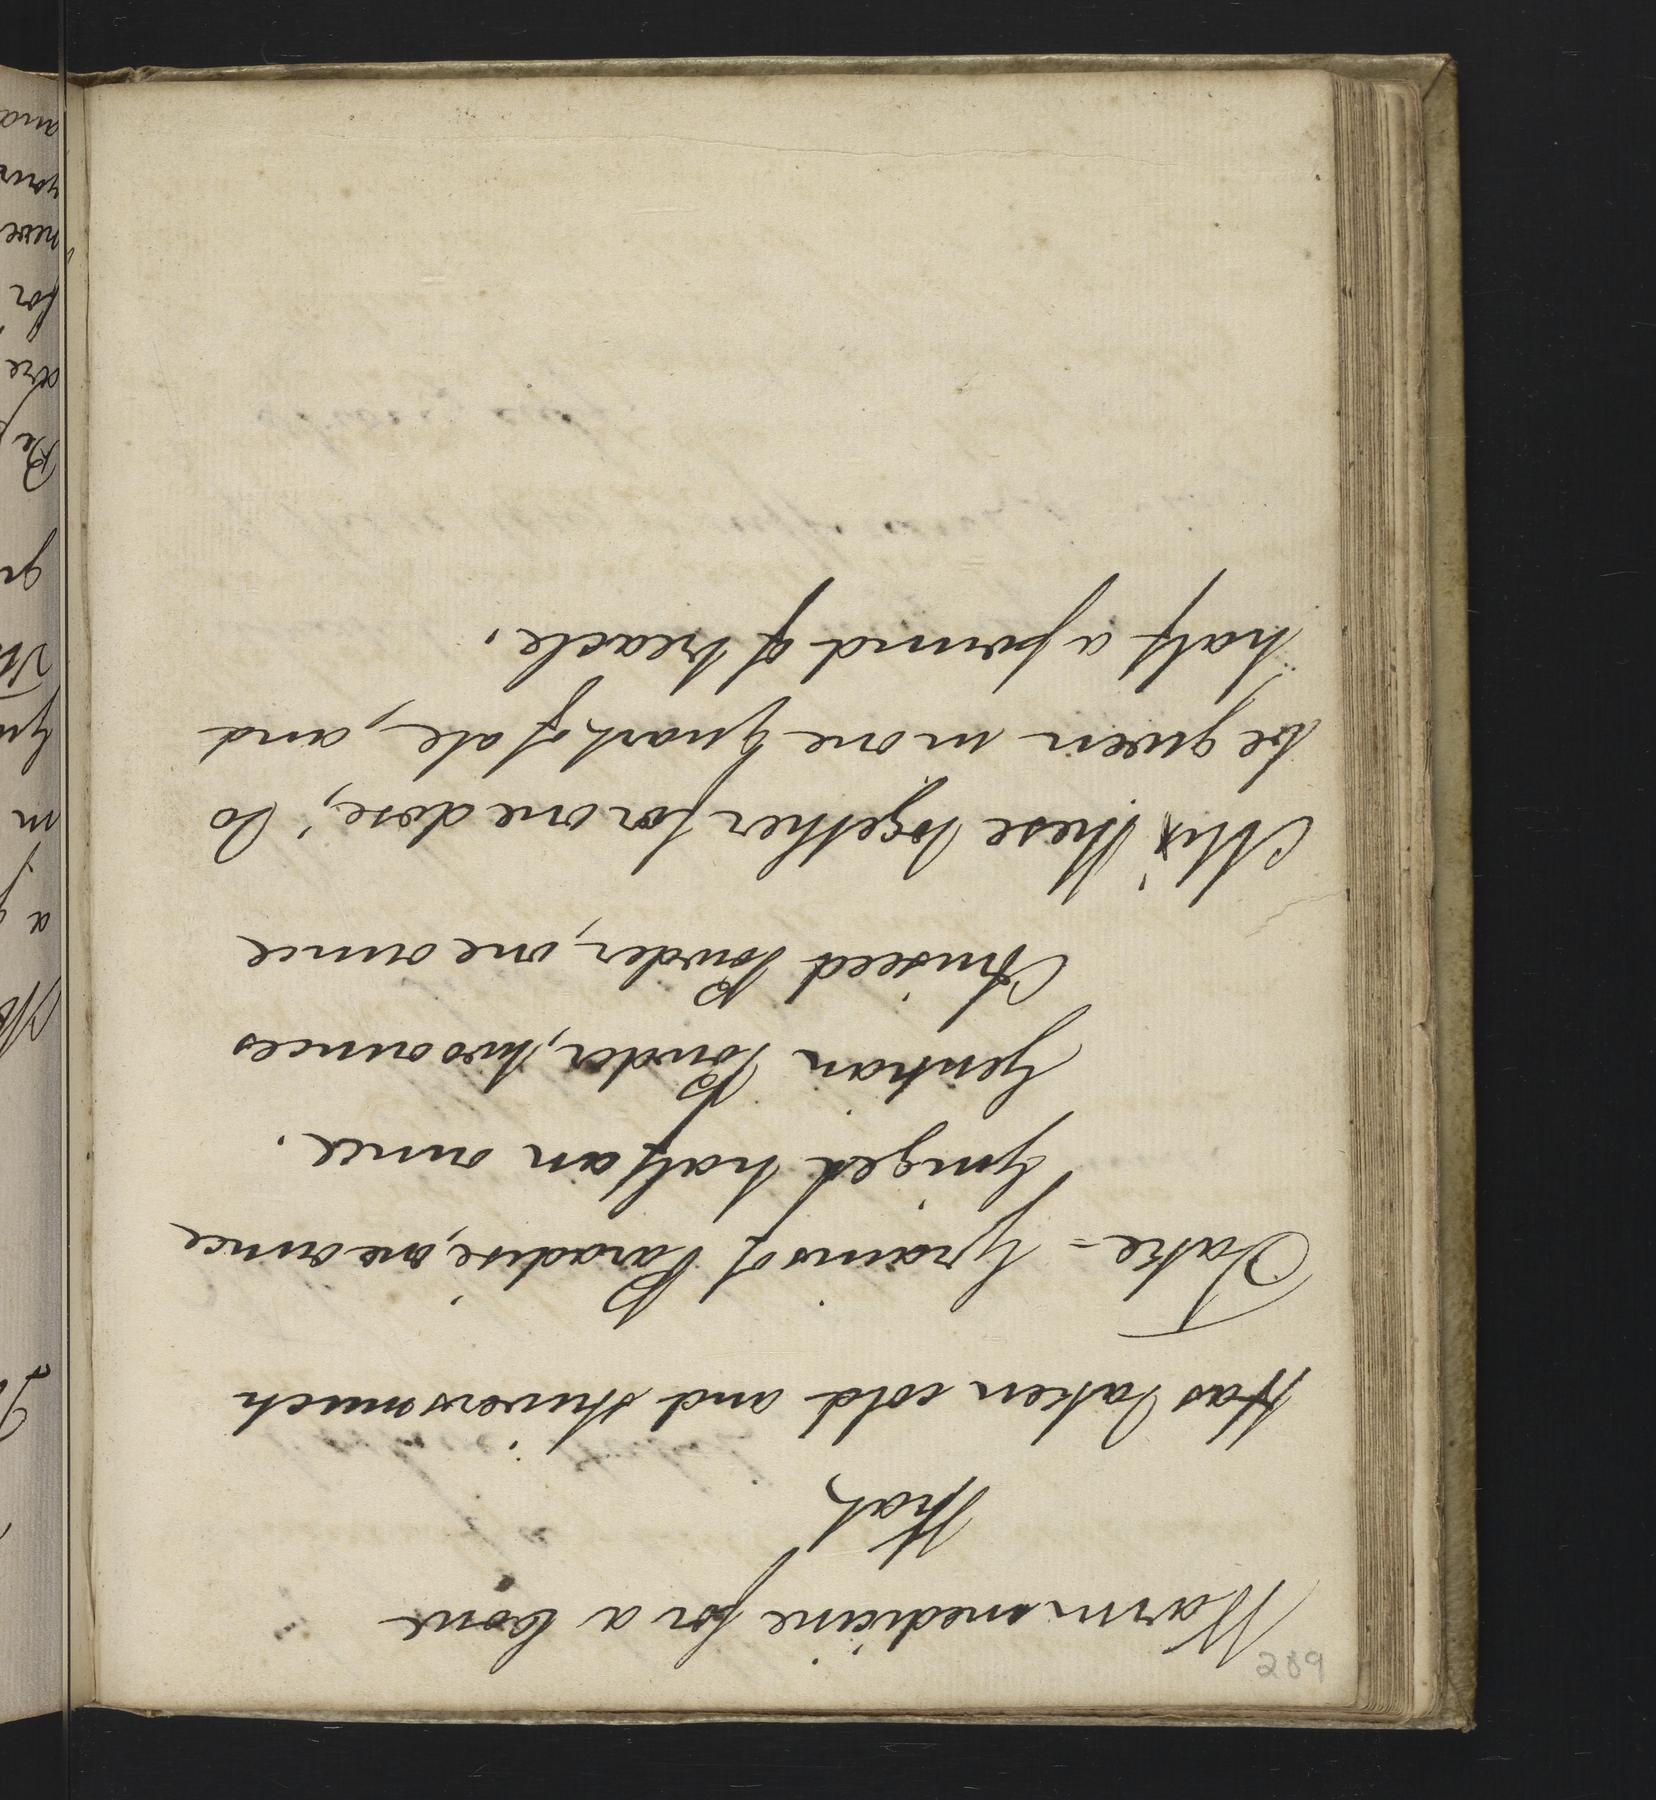 Warm medicine for a Cow
that
Has taken cold and shivers much
Take = Grains of Paradise, one ounce
Ginger half an ounce.
Gentian Powder, two ounces
Aniseed Powder, one ounce
Mix these together for one dose; to
be given in one Quart of ale, and
half a pound of treacle.
289